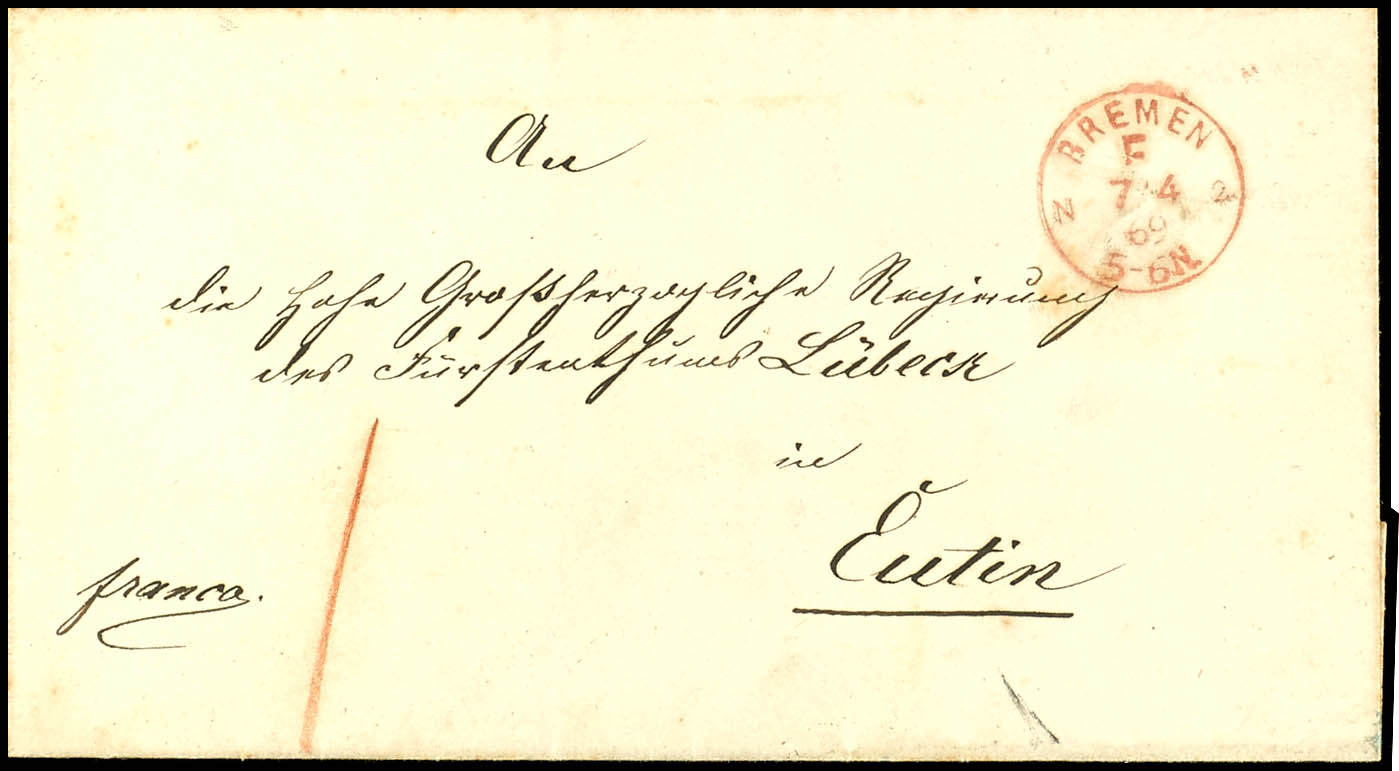 An
BREMEN
F
7 4
N 2
69
5-6N
die Hohe Großherzogliche Regierung
des Fürstenthums Lübeck
in
Eutin
franco.